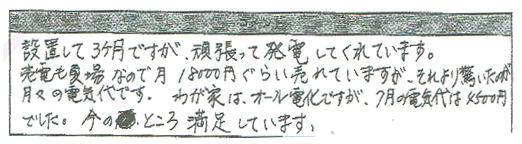 設置して3ケ月ですが、頑張って発電してくれています。
売電も夏場なので月18000円ぐらい売れていますが、それより驚いたのが
月々の電気代です。わが家は、オール電化ですが、7月の電気代は4500円
でした。今のところ満足しています。